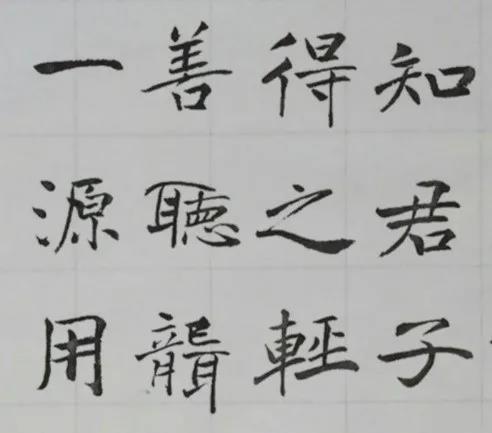 知君子
得之輕
善聴聾
一源用